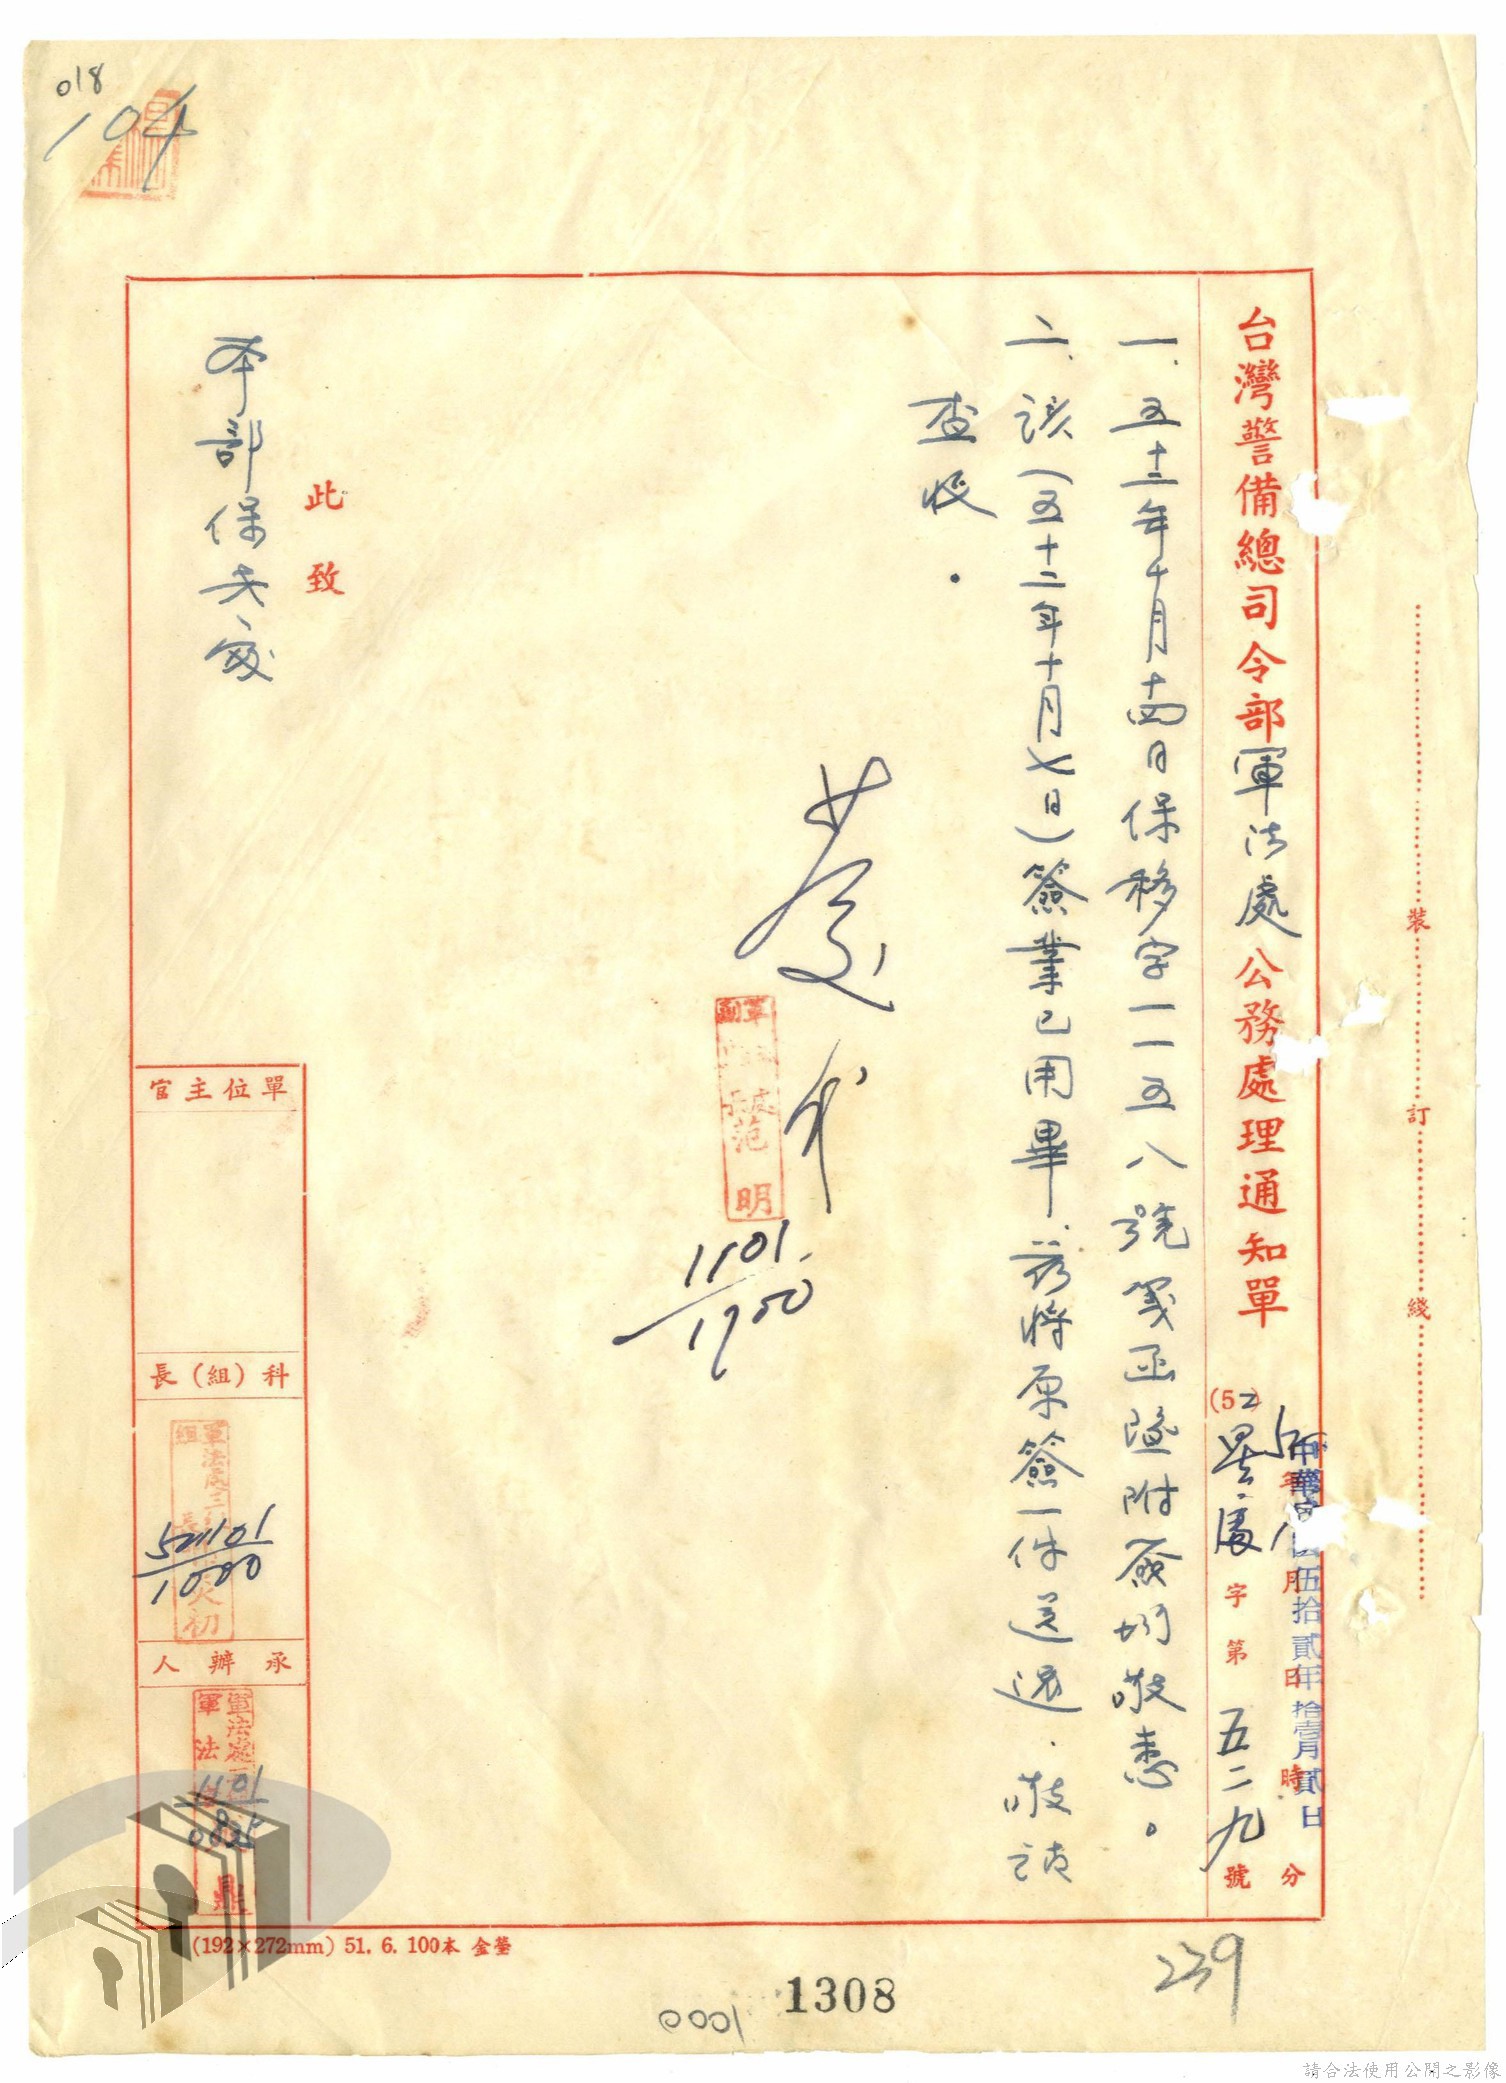 018
104
台灣警備總司令部軍法處公務處理通知單
(52)
字第五二九號
年 月 日 時 分
中華民國伍拾貳年拾壹月貳日
一、五十二年十月十四日保移字一一五八號箋函暨附簽均敬悉。
二、該(五十二年十月七日)簽業已用畢,茲將原簽一件送還,敬請
查收。
范明
1101
1700
此致
本部保安處
單位主官
科(組)長
軍法處
組長
521101
1000
承辦人
軍法處
軍法
鼎
1101
0835
裝
訂
綫
(192×272mm) 51. 6. 100本 金鎣
1308
0001
239
請合法使用公開之影像